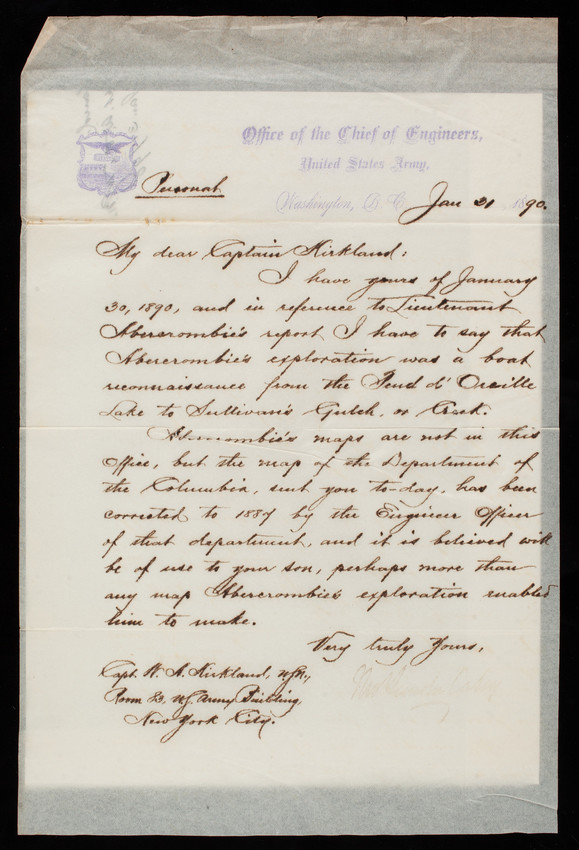 Office of the Chief of Engineers,
United States Army,
Personal.
Washington, D.C. Jan 31 1890.
My dear Captain Kirkland:
I have yours of January
30, 1890, and in reference to Lieutenant
Abercrombie's report I have to say that
Abercrombie's exploration was a boat
reconnaissance from the Pend d'Oreille
Lake to Sullivan's Gulch, or Creek.
Abercrombie's maps are not in this
office, but the map of the Department of
the Columbia, sent you to-day, has been
corrected to 1887 by the Engineer Officer
of that department, and it is believed will
be of use to your son, perhaps more than
any map Abercrombie's exploration enabled
him to make.
Very truly yours,
Capt. W. A. Kirkland, U.S.N.,
Room 23, U.S. Army Building,
New York City.